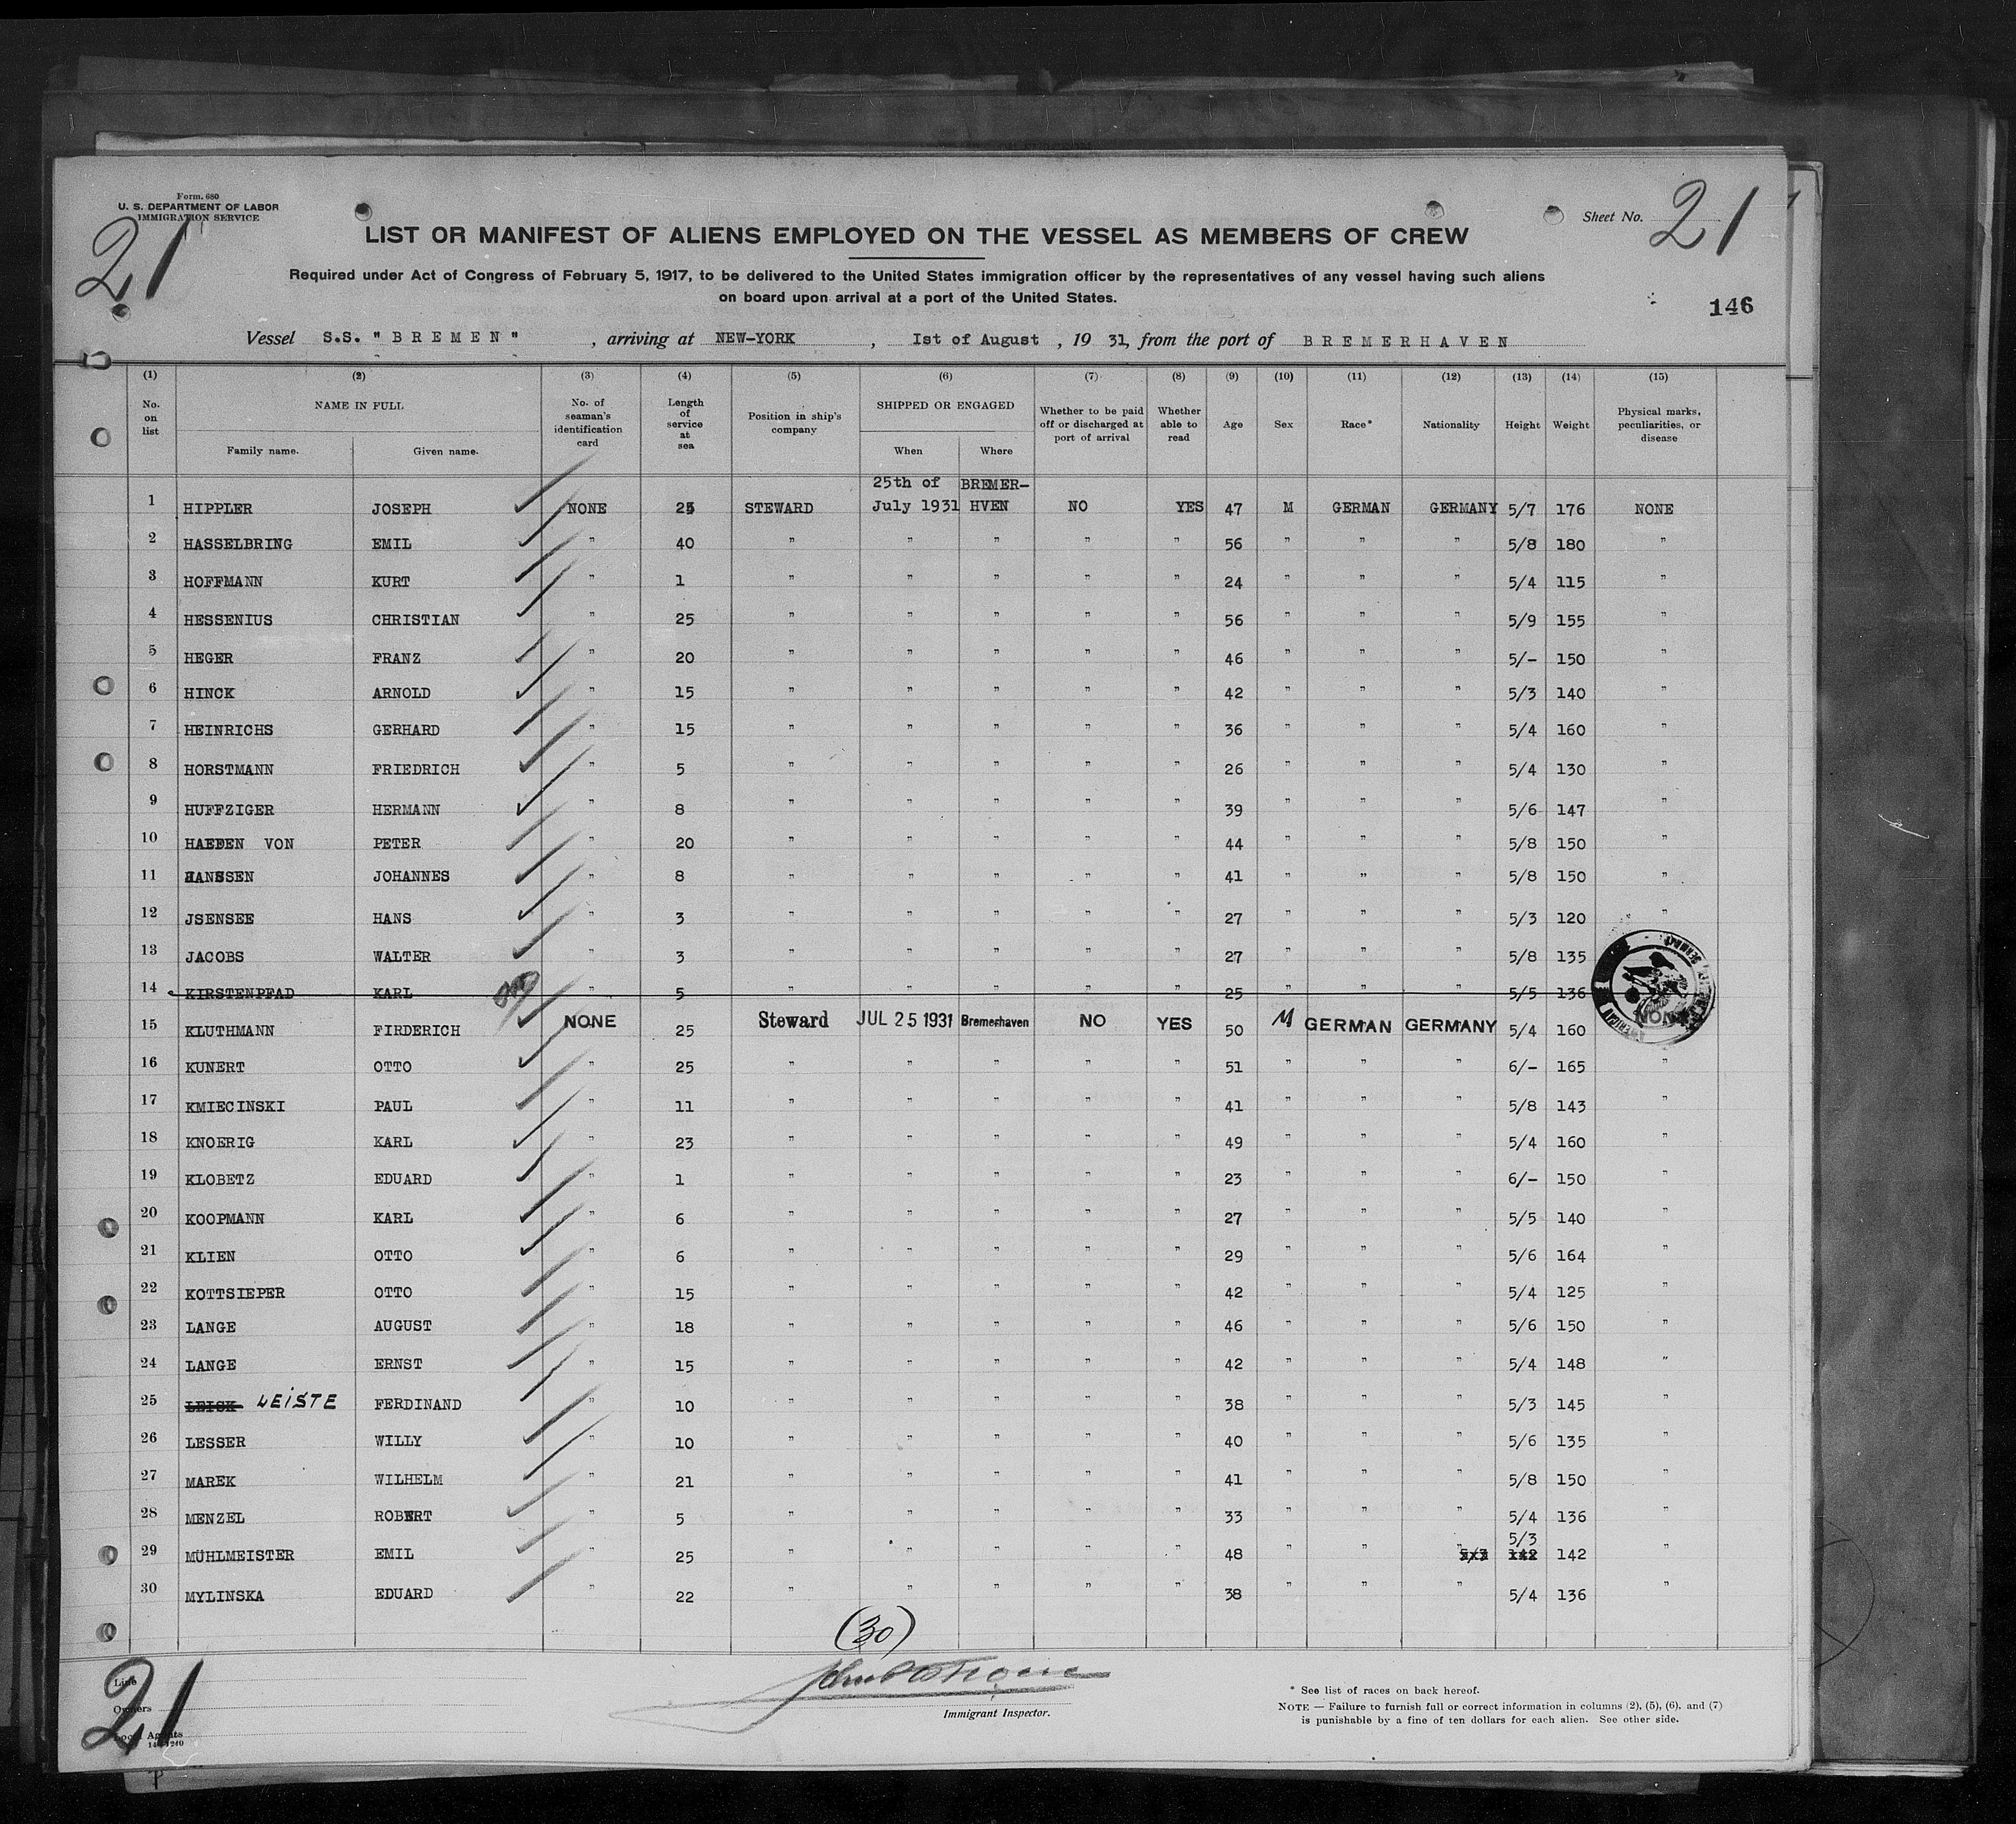 Form. 680
U. S. DEPARTMENT OF LABOR
IMMIGRATION SERVICE
21
Sheet No. 21
LIST OR MANIFEST OF ALIENS EMPLOYED ON THE VESSEL AS MEMBERS OF CREW
Required under Act of Congress of February 5, 1917, to be delivered to the United States immigration officer by the representatives of any vessel having such aliens
on board upon arrival at a port of the United States.
146
Vessel S.S. "BREMEN", arriving at NEW-YORK, Ist of August, 19 31, from the port of BREMERHAVEN
(1) (2) (3) (4) (5) (6) (7) (8) (9) (10) (11) (12) (13) (14) (15)
No. on list NAME IN FULL Family name. Given name. No. of seaman's identification card Length of service at sea Position in ship's company SHIPPED OR ENGAGED When Where Whether to be paid off or discharged at port of arrival Whether able to read Age Sex Race* Nationality Height Weight Physical marks, peculiarities, or disease
25th of BREMER-
1 HIPPLER JOSEPH NONE 25 STEWARD July 1931 HVEN NO YES 47 M GERMAN GERMANY 5/7 176 NONE
2 HASSELBRING EMIL " 40 " " " " " 56 " " " 5/8 180 "
3 HOFFMANN KURT " 1 " " " " " 24 " " " 5/4 115 "
4 HESSENIUS CHRISTIAN " 25 " " " " " 56 " " " 5/9 155 "
5 HEGER FRANZ " 20 " " " " " 46 " " " 5/- 150 "
6 HINCK ARNOLD " 15 " " " " " 42 " " " 5/3 140 "
7 HEINRICHS GERHARD " 15 " " " " " 36 " " " 5/4 160 "
8 HORSTMANN FRIEDRICH " 5 " " " " " 26 " " " 5/4 130 "
9 HUFFZIGER HERMANN " 8 " " " " " 39 " " " 5/6 147 "
10 HAEFEN VON PETER " 20 " " " " " 44 " " " 5/8 150 "
11 JANSSEN JOHANNES " 8 " " " " " 41 " " " 5/8 150 "
12 JSENSEE HANS " 3 " " " " " 27 " " " 5/3 120 "
13 JACOBS WALTER " 3 " " " " " 27 " " " 5/8 135
14 KIRSTENPFAD KARL " 5 " " " " " 25 " " " 5/5 136
15 KLUTHMANN FIRDERICH NONE 25 Steward JUL 25 1931 Bremerhaven NO YES 50 M GERMAN GERMANY 5/4 160 NON
16 KUNERT OTTO " 25 " " " " " 51 " " " 6/- 165 "
17 KMIECINSKI PAUL " 11 " " " " " 41 " " " 5/8 143 "
18 KNOERIG KARL " 23 " " " " " 49 " " " 5/4 160 "
19 KLOBETZ EDUARD " 1 " " " " " 23 " " " 6/- 150 "
20 KOOPMANN KARL " 6 " " " " " 27 " " " 5/5 140 "
21 KLIEN OTTO " 6 " " " " " 29 " " " 5/6 164 "
22 KOTTSIEPER OTTO " 15 " " " " " 42 " " " 5/4 125 "
23 LANGE AUGUST " 18 " " " " " 46 " " " 5/6 150 "
24 LANGE ERNST " 15 " " " " " 42 " " " 5/4 148 "
25 LEISK LEISTE FERDINAND " 10 " " " " " 38 " " " 5/3 145 "
26 LESSER WILLY " 10 " " " " " 40 " " " 5/6 135 "
27 MAREK WILHELM " 21 " " " " " 41 " " " 5/8 150 "
28 MENZEL ROBERT " 5 " " " " " 33 " " " 5/4 136 "
5/3
29 MÜHLMEISTER EMIL " 25 " " " " " 48 " " " 5/3 142 142 "
30 MYLINSKA EDUARD " 22 " " " " " 38 " " " 5/4 136 "
(30)
Immigrant Inspector.
21
Line
Owners
Local Agents
* See list of races on back hereof.
NOTE — Failure to furnish full or correct information in columns (2), (5), (6), and (7)
is punishable by a fine of ten dollars for each alien. See other side.